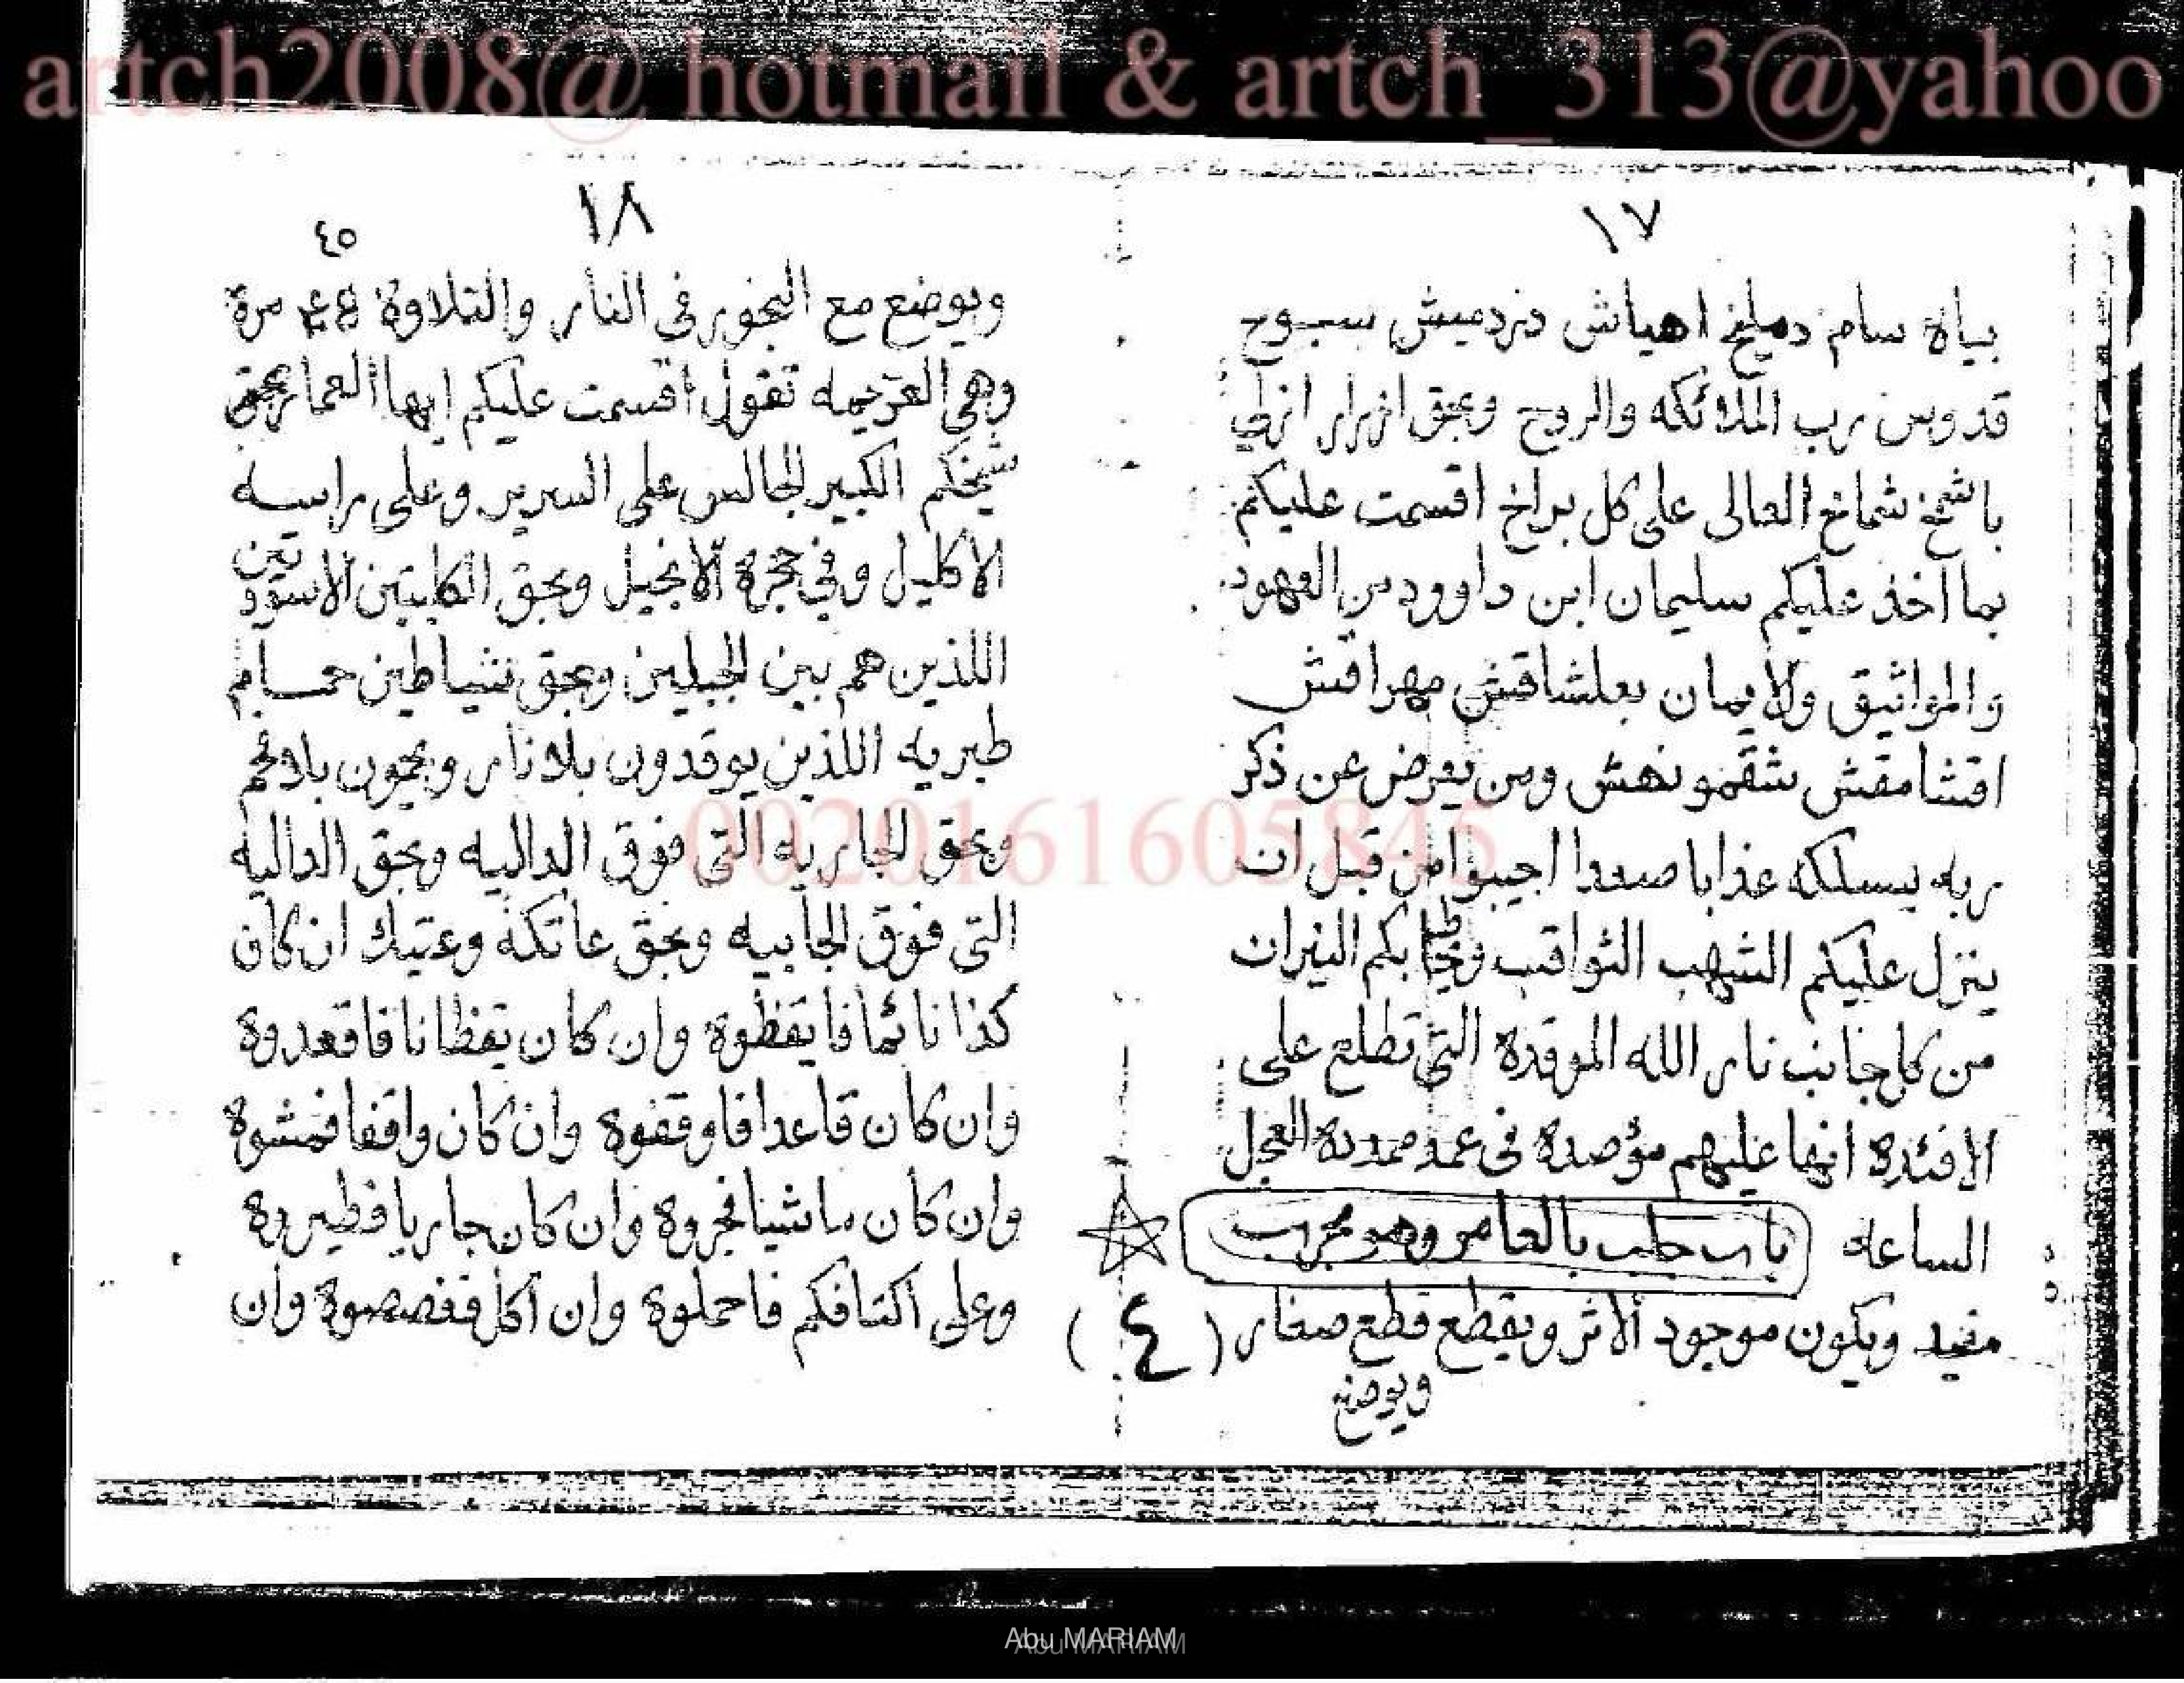 artch2008@ hotmail & artch_313@yahoo
١٧
بياه سام دمليخ اهياش دزدميش سبوح
قدوس رب الملائكه والروح وبحق ازرار ازلي
باشمخ شماخ العالى على كل براخ اقسمت عليكم
بما اخذ عليكم سليمان ابن داوود من العهود
والمواثيق ولايمان بعلشاقش مهراقش
اقشامقش شقمونهش ومن يعرض عن ذكر
ربه يسلكه عذابا صعدا اجيبوا من قبل ان
ينزل عليكم الشهب الثواقب بكم النيران
من كل جانب نار الله الموقدة التى تطلع على
الافئدة انها عليهم مؤصدة فى عمد ممددة العجل
الساعه باب جلب بالعامر وهو مجرب
مفيد ويكون موجود ألاثر ويقطع قطع صغار (٤)
ويوضع
١٨
٤٥
ويوضع مع البخور فى النار والتلاوة مرة
وهي العزيمه تقول اقسمت عليكم ايها العمار بحق
شيخكم الكبير الجالس على السرير وعلى راسه
الاكليل وفي حجرة الانجيل وبحق الكلبتين الاسودتين
اللذين هم بين الجبلين وبحق شياطين حمام
طبريه اللذين يوقدون بلا نار ويحمون بلا فحم
وبحق الجاريه التى فوق الداليه وبحق الداليه
التى فوق الجابيه وبحق عاتكة وعتيك ان كان
كذا نائما فايقظوة وان كان يقظانا فاقعدوة
وان كان قاعدا فاوقفوة وان كان واقفا فمشوة
وان كان ماشيا فجروة وان كان جاريا فطيروة
وعلى اكتافكم فاحملوة وان اكل فغصصوة وان
0020161605845
Abu MARIAM